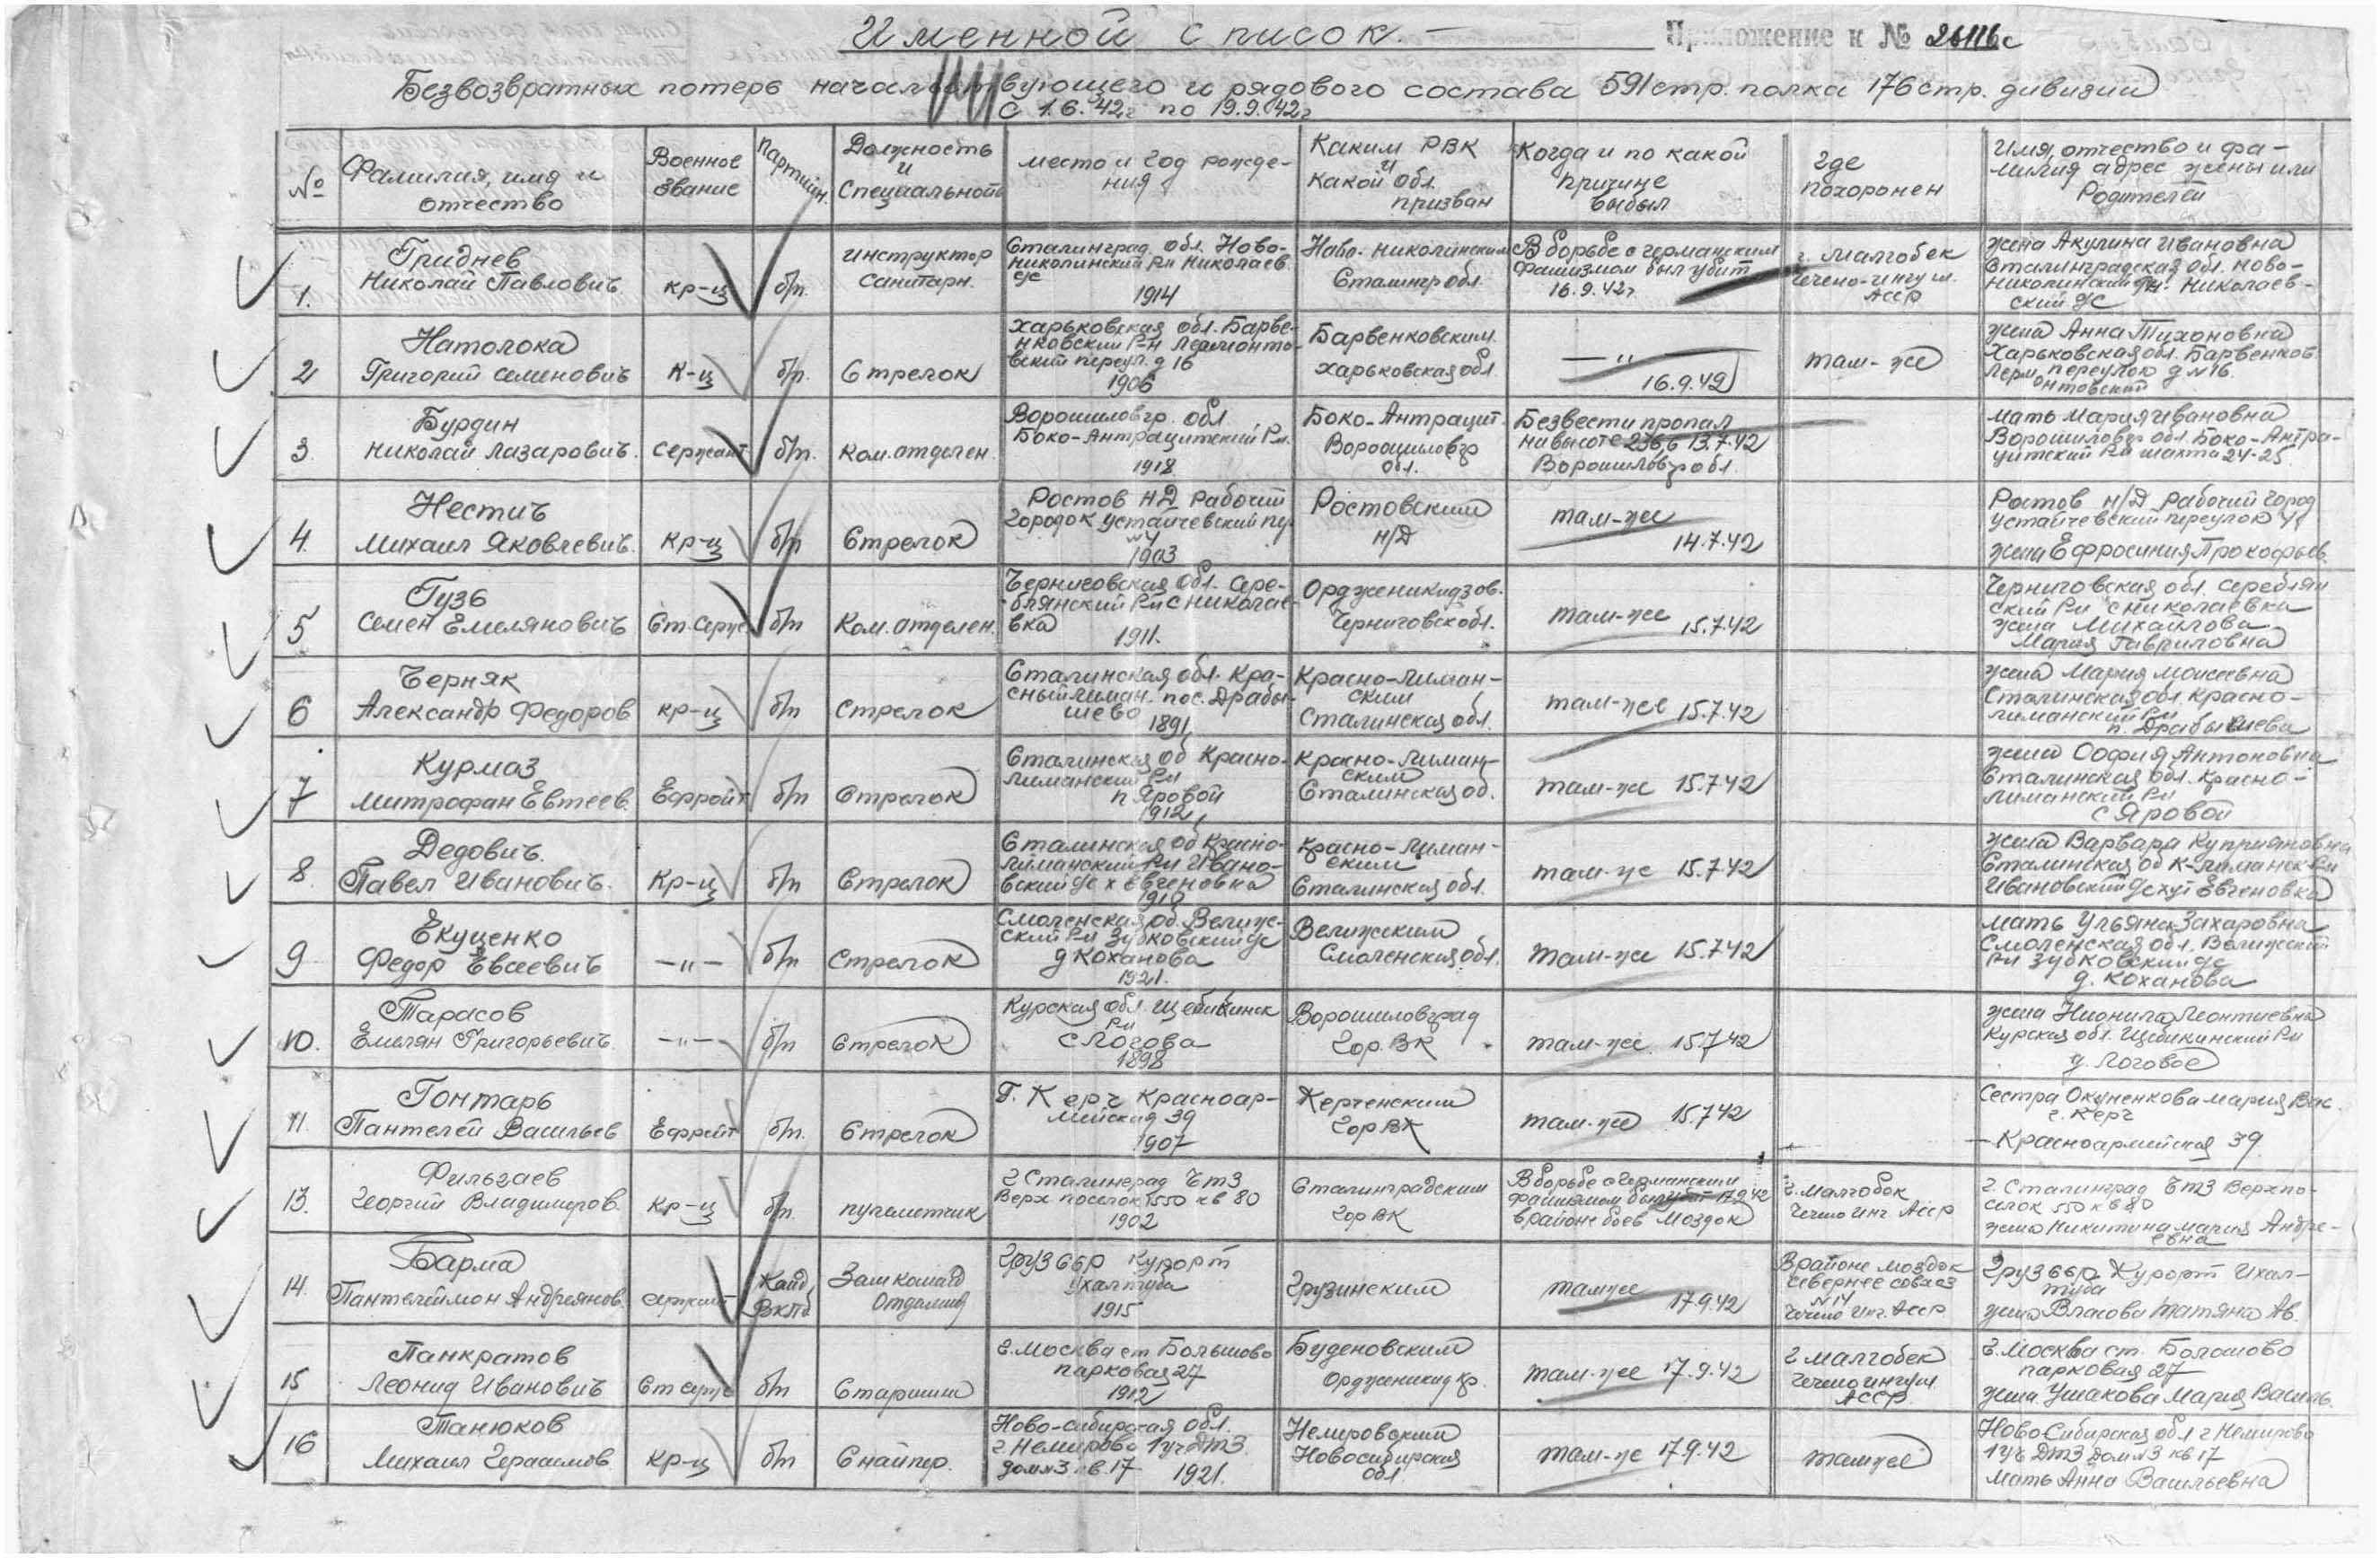 Именной список. —
Приложение к № 26116с
Безвозвратных потерь начальствующего и рядового состава 591 стр. полка 176 стр. дивизии
С 1.6.42г по 19.9.42г
№
Фамилия, имя и
отчество
Военное
звание
Партийн.
Должность
и
Специальность
место и год рожде-
ния
Каким РВК
и
какой обл.
призван
Когда и по какой
причине
выбыл
где
похоронен
Имя, отчество и фа-
милия адрес жены или
Родителей
1.
Гриднев
Николай Павлович
кр-ц
б/п.
инструктор
санитарн.
Сталинград. обл. Ново-
николинский Рн Николаев
с/с
1914
Ново-николинским
Сталингр обл.
В борьбе с германским
фашизмом был убит
16.9.42г
г. Малгобек
Чечено-ингуш.
АССР
жена Акулина Ивановна
Сталинградская обл. Ново-
николинский Рн. Николаев-
ский с/с
2
Натолока
Григорий Семенович
К-ц
б/п.
Стрелок
Харьковская обл. Барве-
нковский Р-н Лермонто-
вский переул. д 16
1906
Барвенковским.
Харьковская обл.
— " —
16.9.42
там-же
жена Анна Тихоновна
Харьковская обл. Барвенков.
Лермонтовский переулок д №16.
3.
Бурдин
Николай Лазарович.
Сержант
б/п.
Ком. отделен.
Ворошиловгр. обл
Боко-Антрацитский Рн.
1918
Боко-Антрацит.
Ворошиловгр
обл.
Безвести пропал
на высоте 236,6 13.7.42
Ворошиловгр обл.
мать Мария Ивановна
Ворошиловгр обл. Боко-Антра-
цитский Рн шахта 24-25
4.
Нестич
Михаил Яковлевич.
кр-ц
б/п
Стрелок
Ростов н/Д Рабочий
городок Устайчевский пер
№4
1903
Ростовским
н/Д
там-же
14.7.42
Ростов н/Д Рабочий город
Устайчевский переулок 4
жена Ефросиния Прокофьев.
5
Гузь
Семен Емелянович
Ст. серж
б/п
Ком. отделен.
Черниговская обл. Сере-
блянский Рн с Николае-
вка
1911.
Орджоникидзов.
Черниговск обл.
там-же
15.7.42
Черниговская обл. Середлян
ский Рн с Николаевка
жена Михайлова
Мария Гавриловна
6
Черняк
Александр Федоров
кр-ц
б/п
Стрелок
Сталинская обл. Кра-
сный лиман. пос. Драбы-
шево
1891
Красно-лиман-
ским
Сталинская обл.
там-же 15.7.42
жена Мария Моисеевна
Сталинская обл. Красно-
лиманский Рн
п. Драбышева
7
Курмаз
Митрофан Евтеев.
Ефрейт
б/п
Стрелок
Сталинская об Красно-
лиманский Рн
п Яровой
1912
Красно-лиман-
ским
Сталинская об.
там-же 15.7.42
жена София Антоновна
Сталинская обл. Красно-
лиманский Рн
с Яровой
8.
Дедович.
Павел Иванович.
Кр-ц
б/п
Стрелок
Сталинская об Красно-
лиманский Рн Ивано-
вский с/с х Евгеновка
1910
Красно-лиман-
ским
Сталинская обл.
там-же 15.7.42
жена Варвара Куприяновна
Сталинская об К-лиманск Рн
Ивановский с/с хут Евгеновка
9
Екуценко
Федор Евсеевич
— " —
б/п
Стрелок
Смоленская об. Велиж-
ский Рн Зубковский с/с
д Коханова
1921.
Велижским
Смоленская обл.
там-же 15.7.42
мать Ульяна Захаровна
Смоленская обл. Велижский
Рн Зубковский с/с
д. Коханова
10.
Тарасов
Емелян Григорьевич.
— " —
б/п
Стрелок
Курская обл. Щебикинск
Рн
с Логова
1898
Ворошиловград
Гор. ВК
там-же 15.7.42
жена Нионила Леонтиевна
Курская обл. Щебикинский Рн
д. Логовое
11.
Гонтарь
Пантелей Васильев
Ефрейт
б/п.
Стрелок
Г. Керч Красноар-
мейская 39
1907
Керченским
Гор ВК
там-же 15.7.42
Сестра Окуненкова Мария Вас.
г. Керч
— Красноармейская 39.
13.
Фильгаев
Георгий Владимиров.
кр-ц
б/п
пулеметчик
г Сталинград ЧТЗ
Верх поселок 550 кв 80
1902
Сталинградским
Гор ВК
В борьбе с Германским
фашизмом был убит 17.9.42
в районе боев Моздок
г. Малгобок
Чечено Инг АССР
г. Сталинград ЧТЗ Верхпо-
селок 550 кв 80
жена Никитина Мария Андре-
евна
14.
Барма
Пантелеймон Андреянов.
сержант
Канд
ВКПб
Зам команд
Отделения
Груз ССР Курорт
Цхалтуба
1915
Грузинским
там же
17.9.42
В районе Моздок
севернее совхоз
№14
Чечено Инг. АССР
Груз ССР Курорт Цхал-
туба
жена Власова Татяна Ав.
15
Панкратов
Леонид Иванович
Ст серж
б/п
Старшина
г. Москва ст Большово
парковая 27
1912
Буденовским
Орджоникид кр.
там-же 17.9.42
г Малгобек
Чечено ингуш
АССР.
г. Москва ст. Болошово
парковая 27
жена Ушакова Мария Василь.
16
Танюков
Михаил Герасимов
кр-ц
б/п
Снайпер.
Ново-сибирская обл.
г. Немирово 1 уч ДТЗ.
дом №3 кв. 17 1921.
Немировским
Новосибирская
обл.
там-же 17.9.42
там же
Ново-Сибирская обл г Немирово
1 уч ДТЗ дом №3 кв 17
мать Анна Васильевна